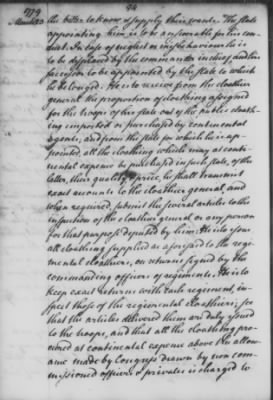 94
1779
March 23
the better to know & supply their wants. The state
appointing him is to be answerable for his con
duct. In case of neglect or misbehaviour he is
to be displaced by the commander in chief and his
successor to be appointed by the state to which
he belonged. He is to receive from the cloathier
general the proportion of cloathing assigned
for the troops of his state out of the public cloath
ing imported or purchased by continental
agents, and from the state for which he is ap
pointed, all the cloathing which may at conti
nental expence be purchased in such state, of the
latter, their quality & price, he shall transmit
exact accounts to the cloathier general, and
when required, submit the several articles to the
inspection of the cloathier general or any person
for that purpose deputed by him: He is to issue
all cloathing supplied as aforesaid to the regi
mental cloathiers, on returns signed by the
commanding officers of regiments. He is to
keep exact returns with each regiment, in
spect those of the regimental cloathiers; see
that the articles delivered them are duly issued
to the troops, and that all the cloathing pro
cured at continental expence above the allow
ance made by Congress drawn by non com
missioned officers & privates is charged to